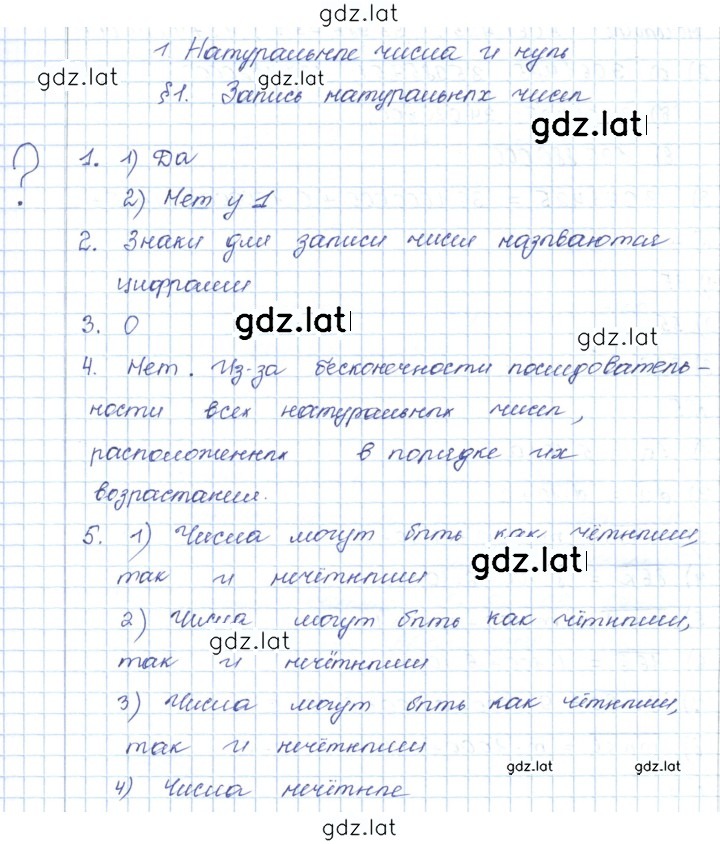 gdz.lat
1. Натуральные числа и нуль
gdz.lat gdz.lat
§1. Запись натуральных чисел
gdz.lat
? 1. 1) Да
2) Нет у 1
2. Знаки для записи чисел называются
цифрами
3. 0 gdz.lat
gdz.lat
4. Нет. Из-за бесконечности последователь-
ности всех натуральных чисел,
расположенных в порядке их
возрастания.
5. 1) Числа могут быть как чётными,
gdz.lat
так и нечётными
2) Числа могут быть как чётными,
gdz.lat
так и нечётными
3) Числа могут быть как чётными,
так и нечётными
gdz.lat gdz.lat
4) Числа нечётные
gdz.lat